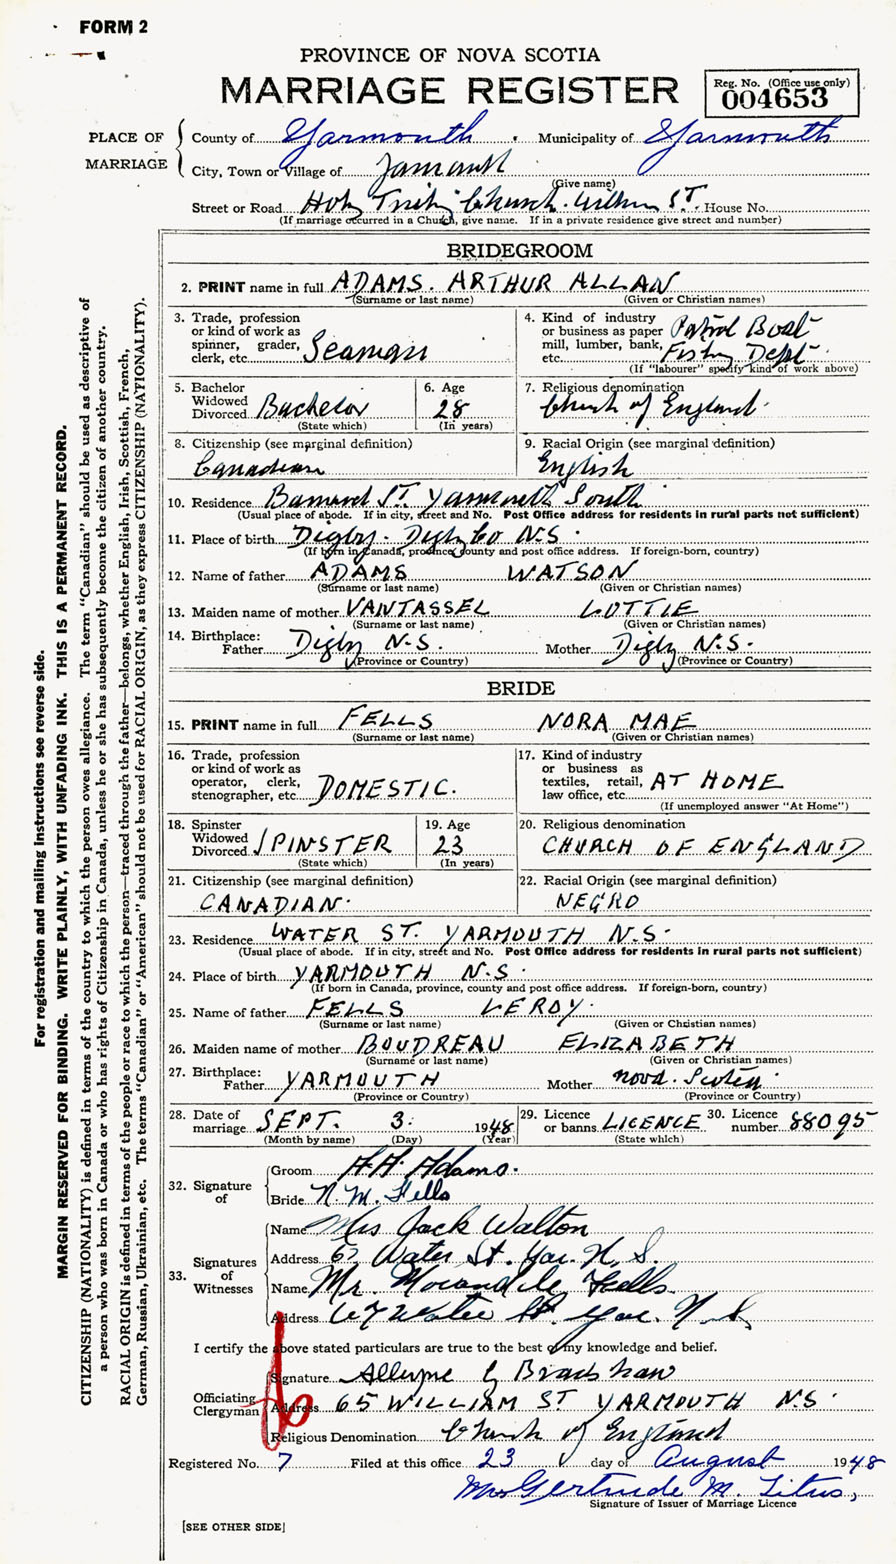 FORM 2
PROVINCE OF NOVA SCOTIA
MARRIAGE REGISTER
Reg. No. (Office use only)
004653
PLACE OF MARRIAGE
County of Yarmouth Municipality of Yarmouth
City, Town or Village of Yarmouth
(Give name)
Street or Road Holy Trinity Church. William ST. House No.
(If marriage occurred in a Church, give name. If in a private residence give street and number)
BRIDEGROOM
2. PRINT name in full ADAMS. ARTHUR ALLAN
(Surname or last name) (Given or Christian names)
3. Trade, profession or kind of work as spinner, grader, clerk, etc. Seaman
4. Kind of industry or business as paper mill, lumber, bank, etc. Patrol Boat Fishing Dept.
(If "labourer" specify kind of work above)
5. Bachelor Widowed Divorced Bachelor
(State which)
6. Age 28
(In years)
7. Religious denomination
Church of England.
8. Citizenship (see marginal definition)
Canadian
9. Racial Origin (see marginal definition)
English
10. Residence ST. Yarmouth South
(Usual place of abode. If in city, street and No. Post Office address for residents in rural parts not sufficient)
11. Place of birth Digby. Digby Co N.S.
(If born in Canada, province, county and post office address. If foreign-born, country)
12. Name of father ADAMS WATSON
(Surname or last name) (Given or Christian names)
13. Maiden name of mother VANTASSEL LOTTIE
(Surname or last name) (Given or Christian names)
14. Birthplace:
Father Digby N.S. Mother Digby N.S.
(Province or Country) (Province or Country)
BRIDE
15. PRINT name in full FELLS NORA MAE
(Surname or last name) (Given or Christian names)
16. Trade, profession or kind of work as operator, clerk, stenographer, etc. DOMESTIC.
17. Kind of industry or business as textiles, retail, law office, etc. AT HOME
(If unemployed answer "At Home")
18. Spinster Widowed Divorced SPINSTER
(State which)
19. Age 23
(In years)
20. Religious denomination
CHURCH OF ENGLAND
21. Citizenship (see marginal definition)
CANADIAN.
22. Racial Origin (see marginal definition)
NEGRO
23. Residence WATER ST. YARMOUTH N.S.
(Usual place of abode. If in city, street and No. Post Office address for residents in rural parts not sufficient)
24. Place of birth YARMOUTH N.S.
(If born in Canada, province, county and post office address. If foreign-born, country)
25. Name of father FELLS LEROY.
(Surname or last name) (Given or Christian names)
26. Maiden name of mother BOUDREAU ELIZABETH
(Surname or last name) (Given or Christian names)
27. Birthplace:
Father YARMOUTH Mother Nova Scotia.
(Province or Country) (Province or Country)
28. Date of marriage SEPT. 3. 1948
(Month by name) (Day) (Year)
29. Licence or banns LICENCE
(State which)
30. Licence number 88095
32. Signature of
Groom A.A. Adams.
Bride N. M. Fells
33. Signatures of Witnesses
Name Mrs Jack Walton
Address 67 Water St. Yar. N.S
Name Mr. Fells
Address 67 Water St. Yar. N.S.
I certify the above stated particulars are true to the best of my knowledge and belief.
Officiating Clergyman
Signature Alleryne G Bradshaw
Address 65 WILLIAM ST YARMOUTH N.S.
Religious Denomination Church of England
Registered No. 7 Filed at this office 23 day of August 1948
Mrs Gertrude M. Titus,
Signature of Issuer of Marriage Licence
[SEE OTHER SIDE]
For registration and mailing instructions see reverse side.
MARGIN RESERVED FOR BINDING. WRITE PLAINLY, WITH UNFADING INK. THIS IS A PERMANENT RECORD.
CITIZENSHIP (NATIONALITY) is defined in terms of the country to which the person owes allegiance. The term "Canadian" should be used as descriptive of
a person who was born in Canada or who has rights of Citizenship in Canada, unless he or she has subsequently become the citizen of another country.
RACIAL ORIGIN is defined in terms of the people or race to which the person—traced through the father—belongs, whether English, Irish, Scottish, French,
German, Russian, Ukrainian, etc. The terms "Canadian" or "American" should not be used for RACIAL ORIGIN, as they express CITIZENSHIP (NATIONALITY).